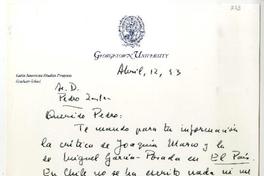 GEORGETOWN UNIVERSITY
Latin American Studies Program
Graduate School
Abril, 12, 93
Sr. D.
Pedro Lastra
Querido Pedro:
Te mando para tu información
la crítica de Joaquín Marco y la
de Miguel García-Posada en El País.
En Chile no se ha escrito nada ni un